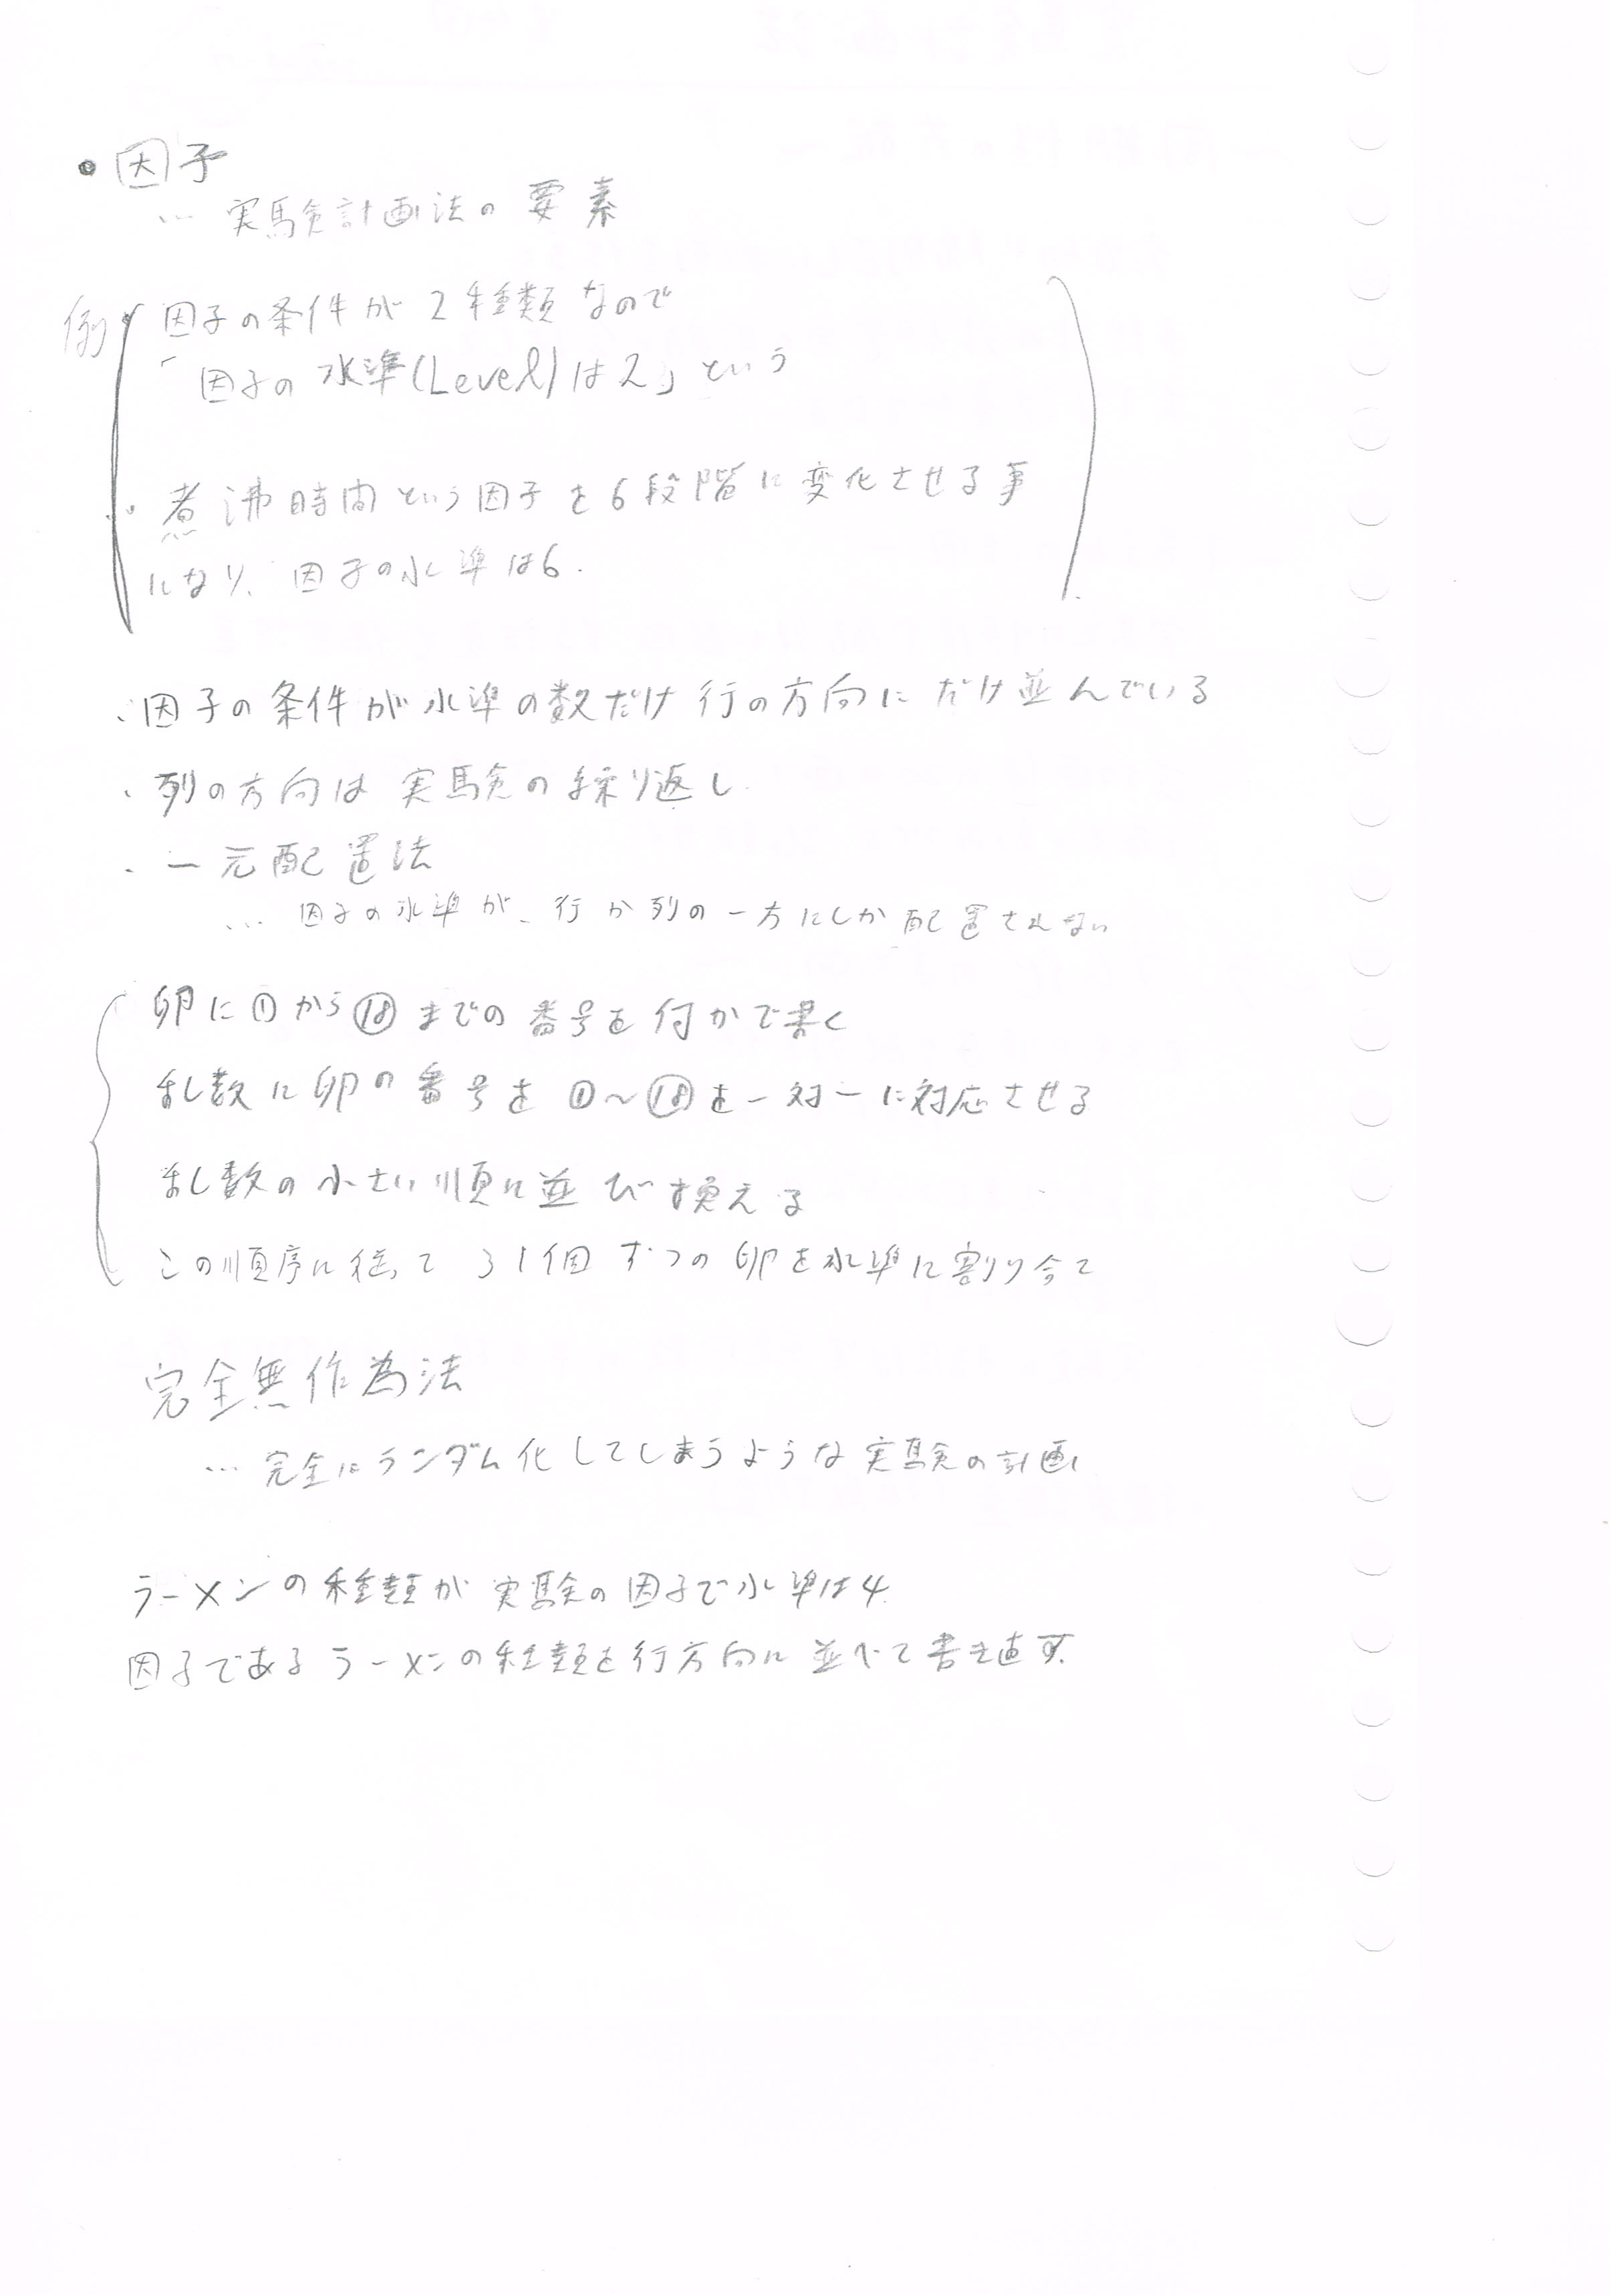 • 因子
… 実験計画法の要素
例 ・因子の条件が2種類なので
「因子の水準(Level)は2」という
・煮沸時間という因子を6段階に変化させる事
になり、因子の水準は6.
・因子の条件が水準の数だけ行の方向にだけ並んでいる
・列の方向は実験の繰り返し
・一元配置法
… 因子の水準が、行か列の一方にしか配置されない
卵に①から⑱までの番号を何かで書く
乱数に卵の番号を①～⑱を一対一に対応させる
乱数の小さい順に並び換える
この順序に従って 個ずつの卵を水準に割り合て
完全無作為法
… 完全にランダム化してしまうような実験の計画
ラーメンの種類が実験の因子で水準は4.
因子であるラーメンの種類を行方向に並べて書き直す.